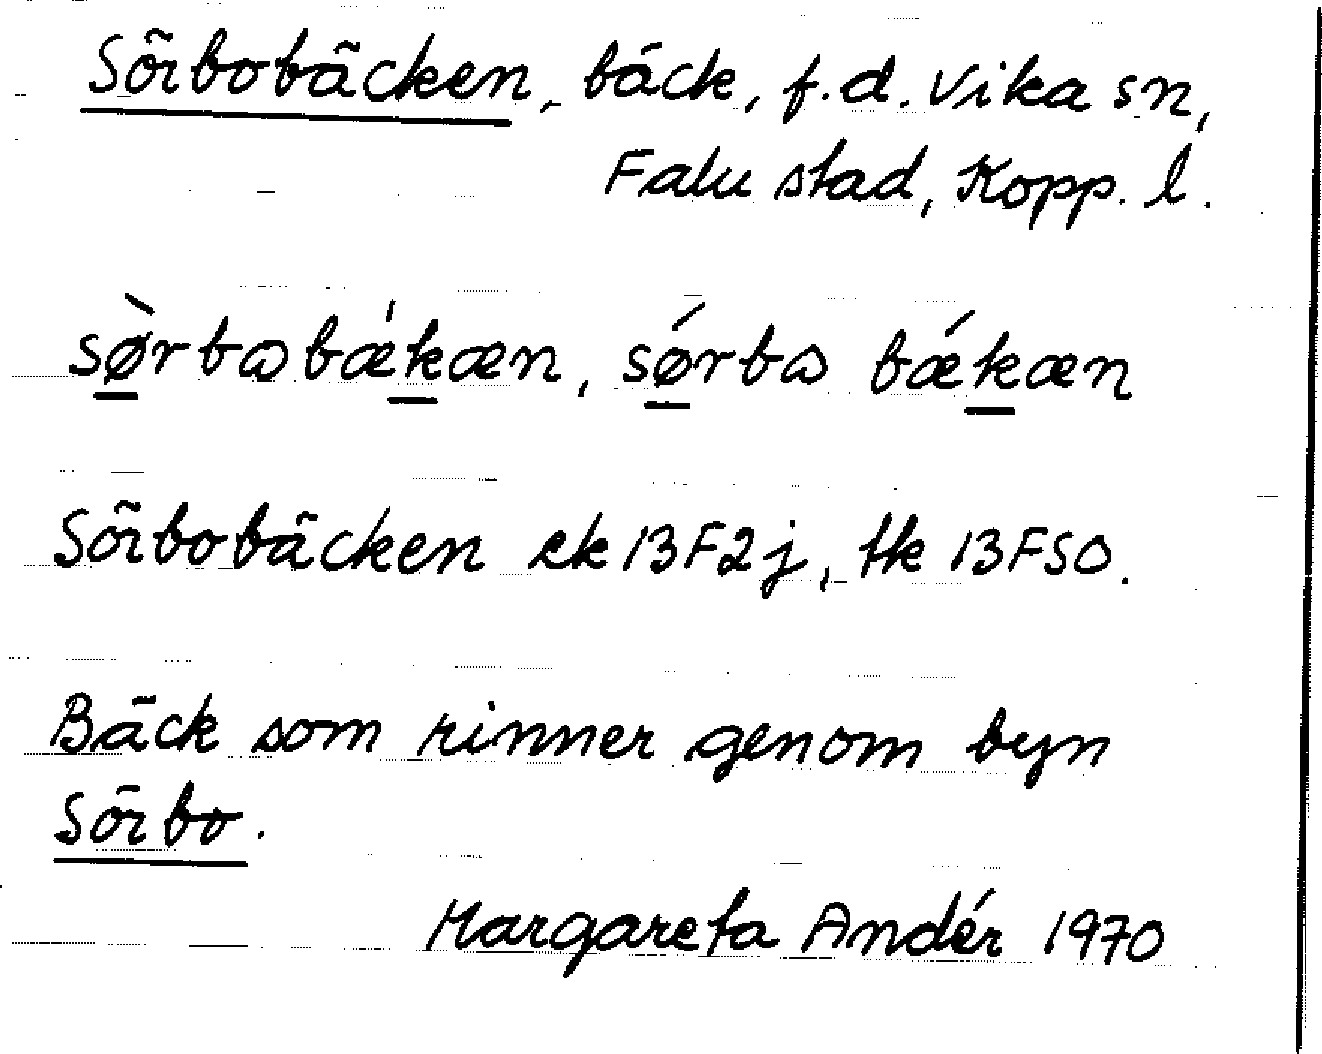 Sörbobäcken, bäck, f.d. Vika sn,
Falu stad, Kopp. l.
sø̀rbɷbækæn, sǿrbɷ bǽkæn
Sörbobäcken ek 13F2j, tk 13FSO.
Bäck som rinner genom byn
Sörbo.
Margareta Andér 1970